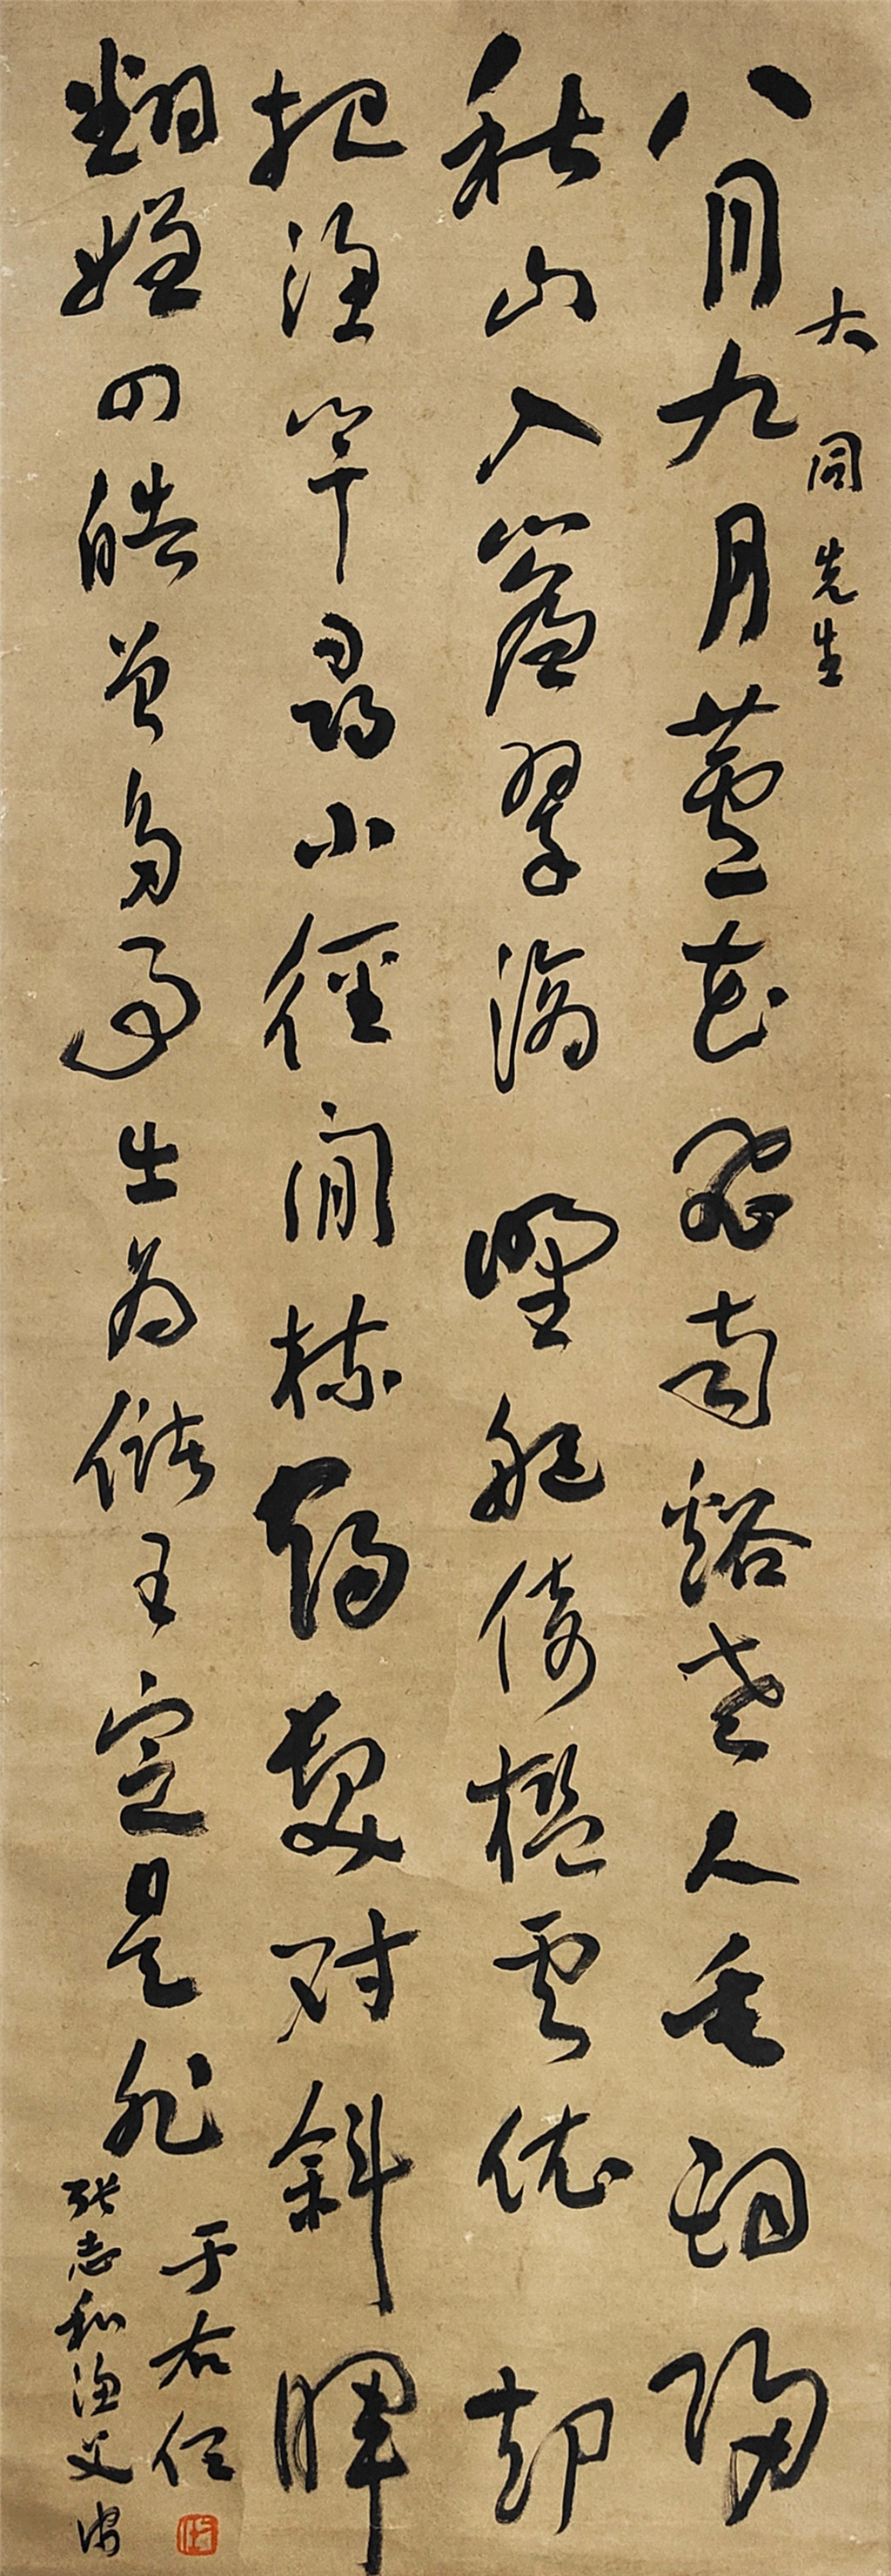 大同先生
八月九月蘆花飛南谿老人垂釣歸
秋山入簾翠滴野艇倚檻雲依却
把漁竿尋小徑閒梳鶴髮對斜暉
翻嫌四皓曾多事出為儲王定是非
于右任
張志和漁父